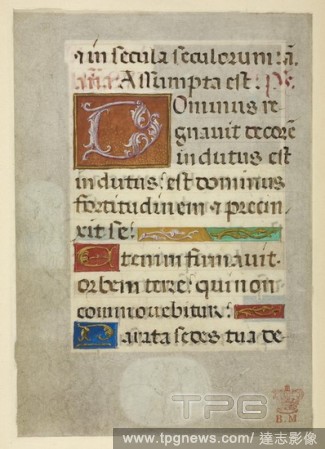 ⁊ in secula seculorum: a.
aña Assumpta est: Ps.
Dominus re
gnavit decorē
indutus est
indutus: est dominus
fortitudinem ⁊ precin
xit se:
Etenim firmavit
orbem terre: qui non
commovebitur:
Parata sedes tua de
B.M
TPG
www.tpgnews.com/ 達志影像